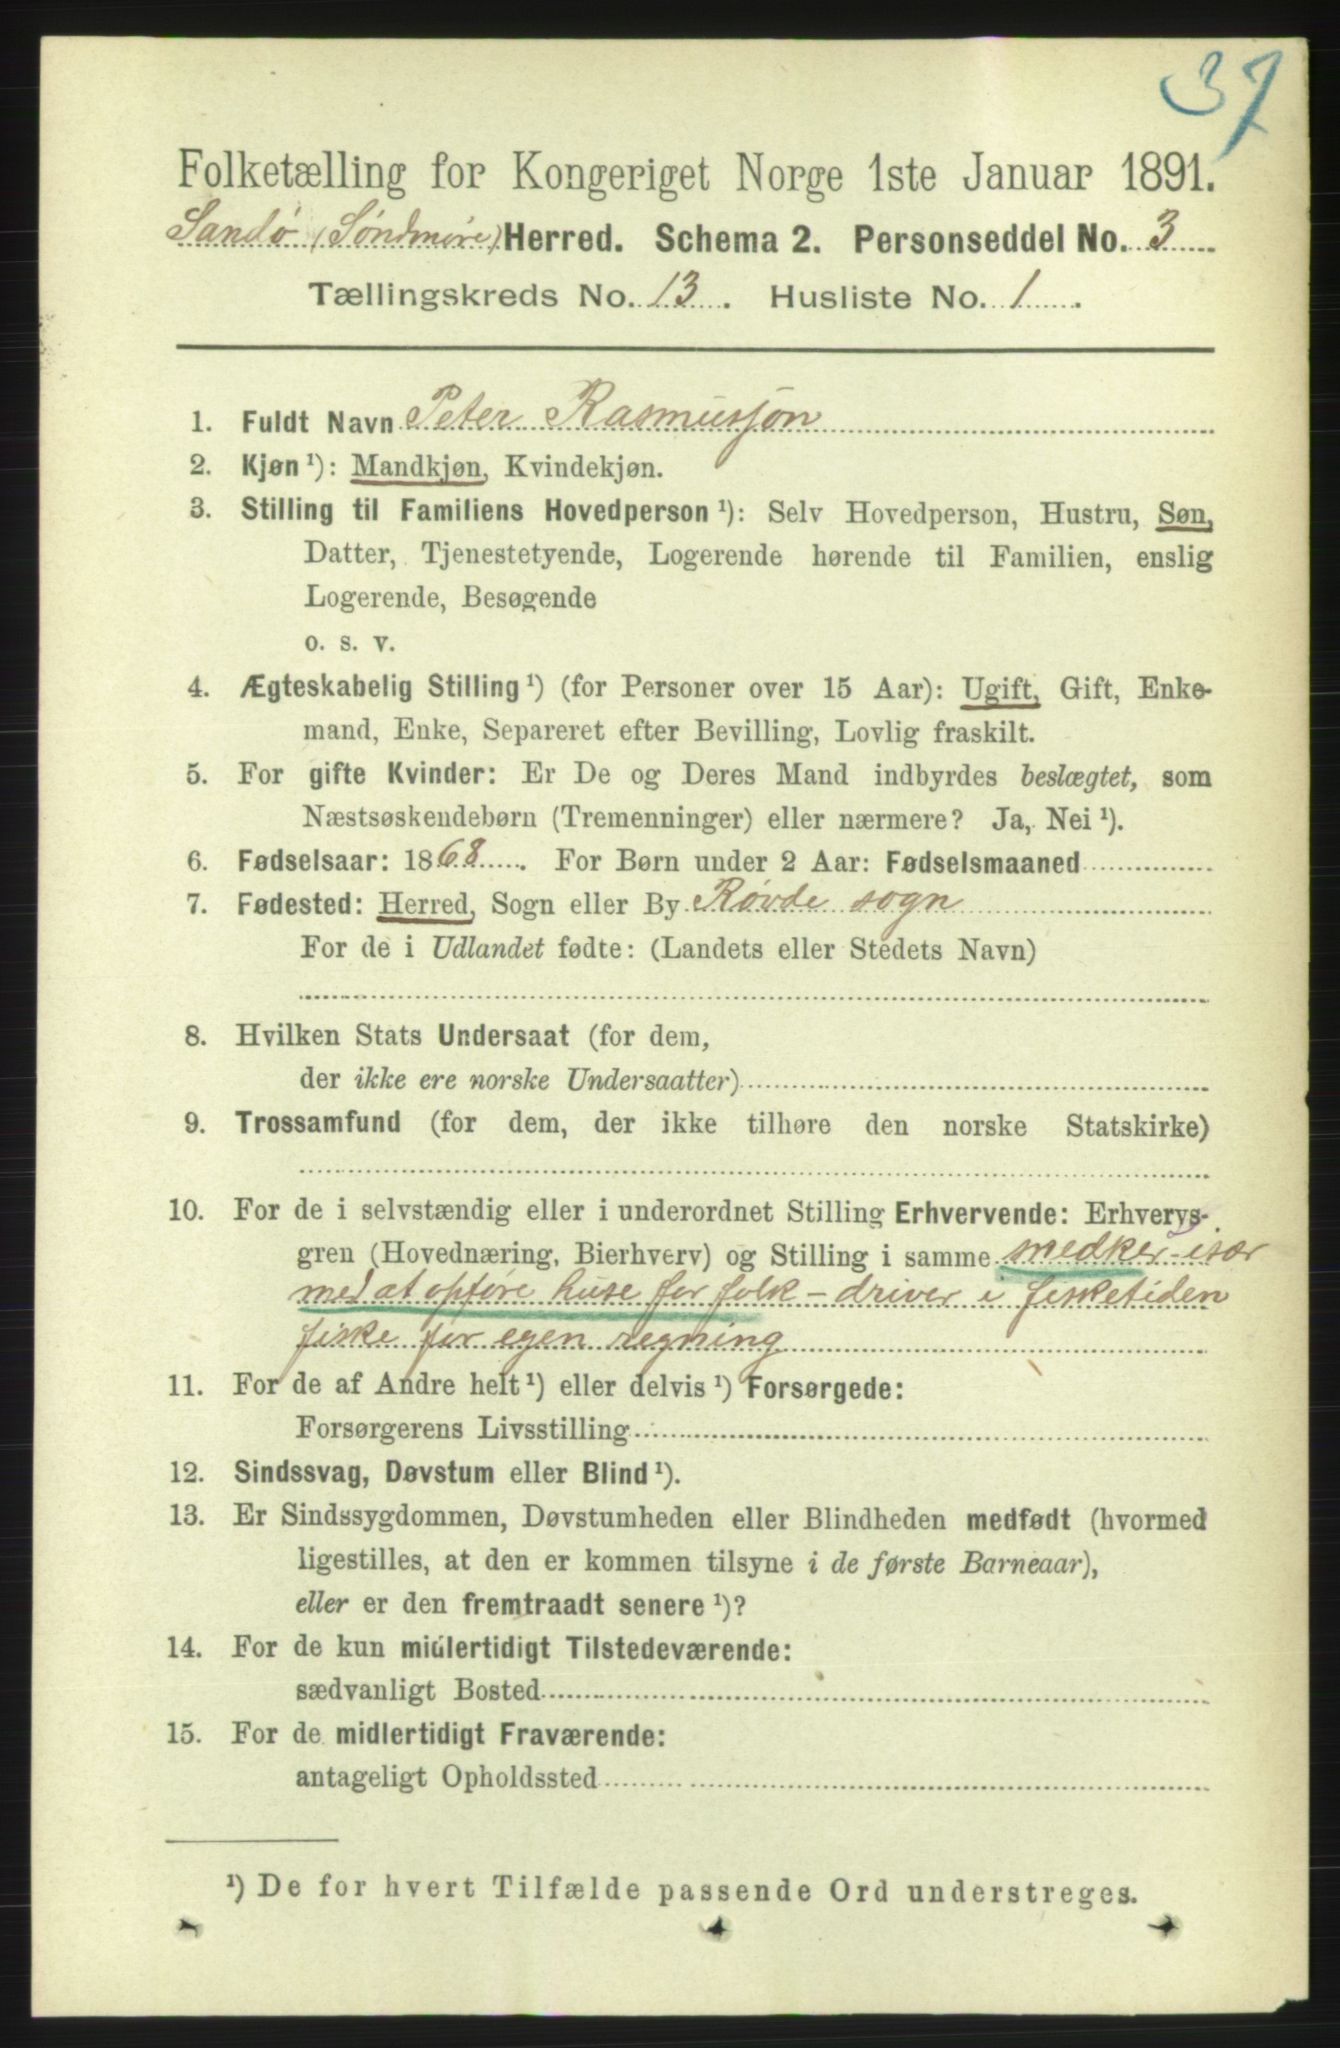 37
Folketælling for Kongeriget Norge 1ste Januar 1891.
Sandø (Søndmøre) Herred. Schema 2. Personseddel No. 3
Tællingskreds No. 13. Husliste No. 1.
1. Fuldt Navn Peter Rasmussøn
2. Kjøn ¹): Mandkjøn, Kvindekjøn.
3. Stilling til Familiens Hovedperson ¹): Selv Hovedperson, Hustru, Søn,
Datter, Tjenestetyende, Logerende hørende til Familien, enslig
Logerende, Besøgende
o. s. v.
4. Ægteskabelig Stilling ¹) (for Personer over 15 Aar): Ugift, Gift, Enke-
mand, Enke, Separeret efter Bevilling, Lovlig fraskilt.
5. For gifte Kvinder: Er De og Deres Mand indbyrdes beslægtet, som
Næstsøskendebørn (Tremenninger) eller nærmere? Ja, Nei ¹).
6. Fødselsaar: 1868. For Børn under 2 Aar: Fødselsmaaned
7. Fødested: Herred, Sogn eller By Røvde sogn
For de i Udlandet fødte: (Landets eller Stedets Navn)
8. Hvilken Stats Undersaat (for dem,
der ikke ere norske Undersaatter)
9. Trossamfund (for dem, der ikke tilhøre den norske Statskirke)
10. For de i selvstændig eller i underordnet Stilling Erhvervende: Erhvervs-
gren (Hovednæring, Bierhverv) og Stilling i samme smedker - især
med at opføre huse for folk - driver i fisketiden
fiske for egen regning
11. For de af Andre helt ¹) eller delvis ¹) Forsørgede:
Forsørgerens Livsstilling
12. Sindssvag, Døvstum eller Blind ¹).
13. Er Sindssygdommen, Døvstumheden eller Blindheden medfødt (hvormed
ligestilles, at den er kommen tilsyne i de første Barneaar),
eller er den fremtraadt senere ¹)?
14. For de kun midlertidigt Tilstedeværende:
sædvanligt Bosted
15. For de midlertidigt Fraværende:
antageligt Opholdssted
¹) De for hvert Tilfælde passende Ord understreges.